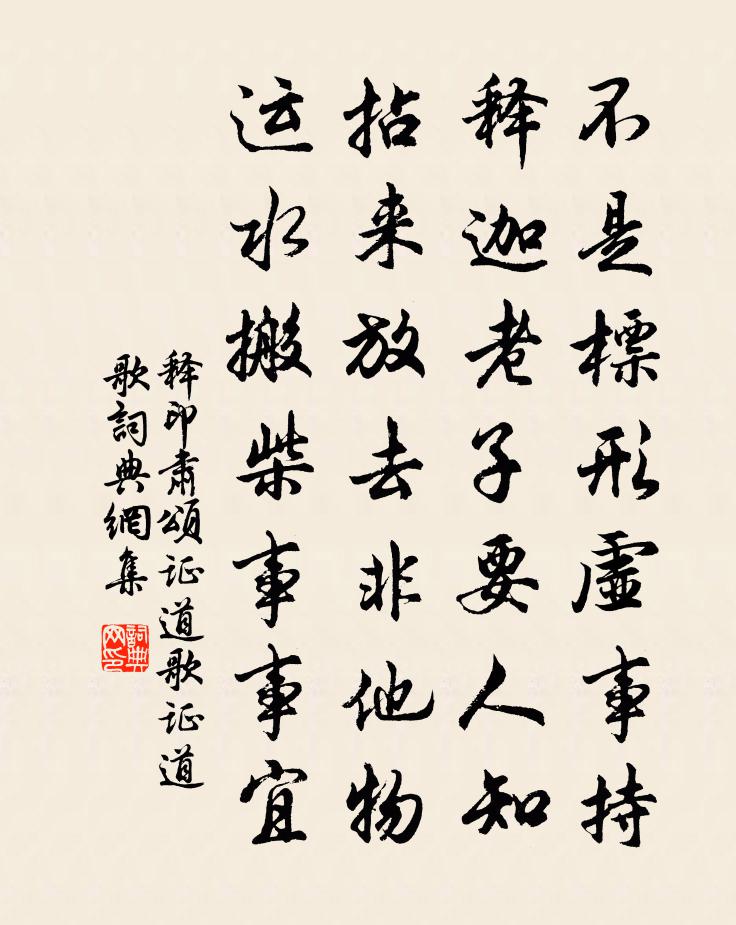 不是標形虛事持
释迦老子要人知
拈来放去非他物
运水搬柴事事宜
释印肃颂证道歌证道
歌詞典網集
詞典
网印